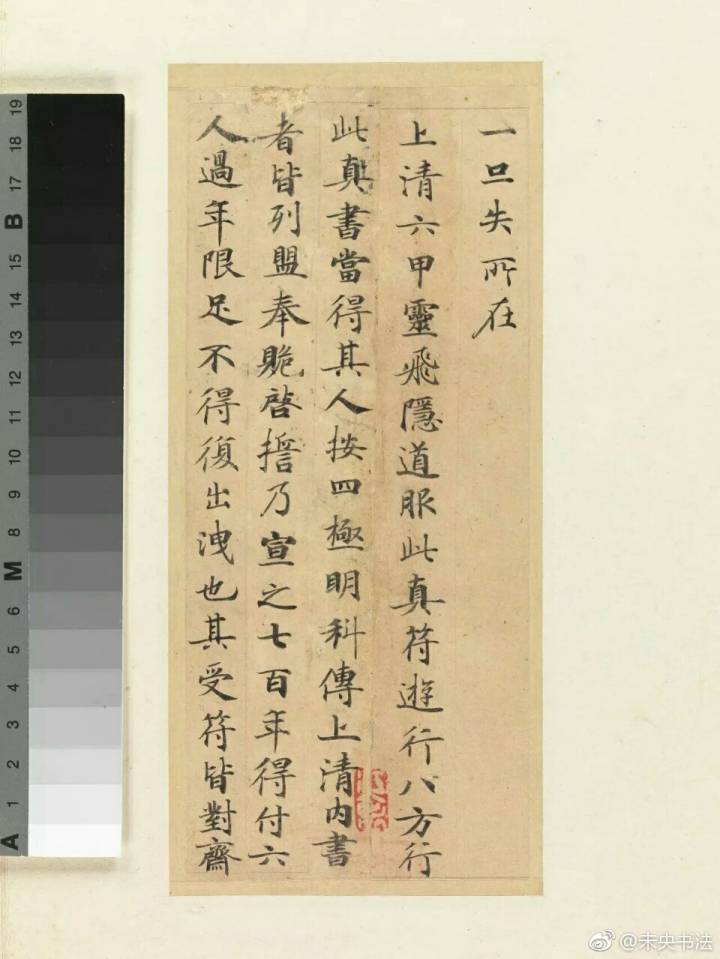 一旦失所在
上清六甲靈飛隱道服此真符遊行八方行
此真書當得其人按四極明科傳上清內書
者皆列盟奉貺啓誓乃宣之七百年得付六
人過年限足不得復出洩也其受符皆對齋
A 1 2 3 4 5 6 M 8 9 10 11 12 13 14 15 B 17 18 19
@未央书法